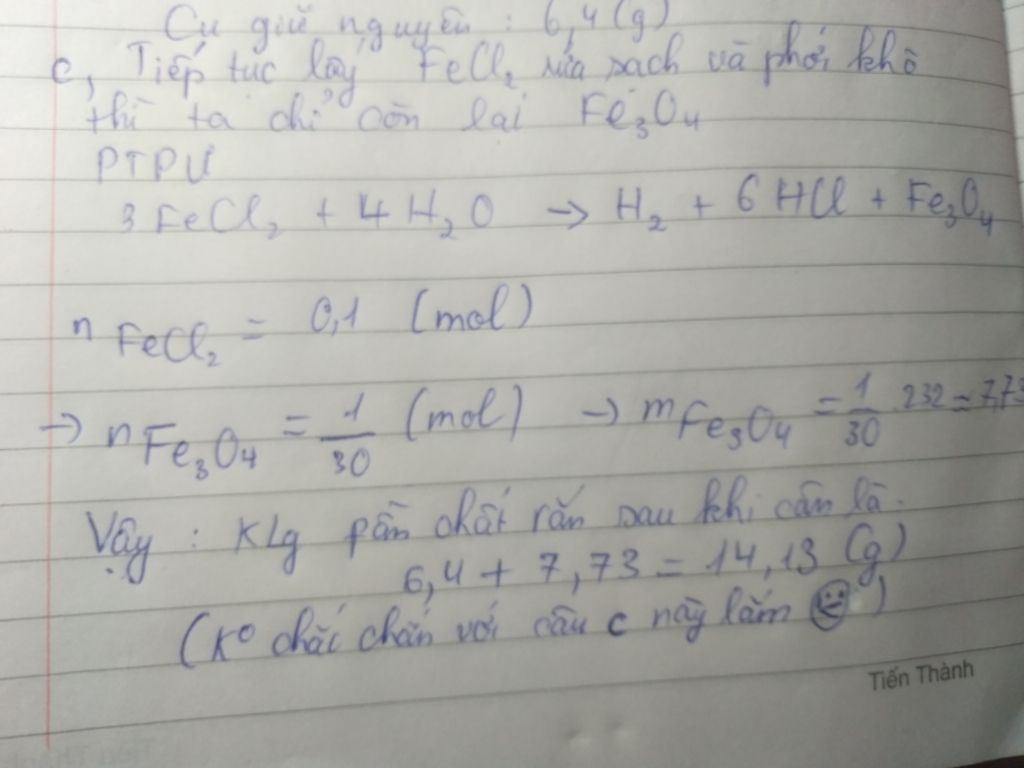 Cu giữ nguyên : 6,4 (g)
c, Tiếp tục lấy FeCl₂ rửa sạch và phơi khô
thì ta chỉ còn lại Fe₃O₄
PTPƯ
3 FeCl₂ + 4 H₂O → H₂ + 6 HCl + Fe₃O₄
n FeCl₂ = 0,1 (mol)
→ n Fe₃O₄ = 1/30 (mol) → m Fe₃O₄ = 1/30 . 232 = 7,73
Vậy : KLg phần chất rắn sau khi cân là.
6,4 + 7,73 = 14,13 (g)
(K⁰ chắc chắn với câu c này lắm )
Tiến Thành